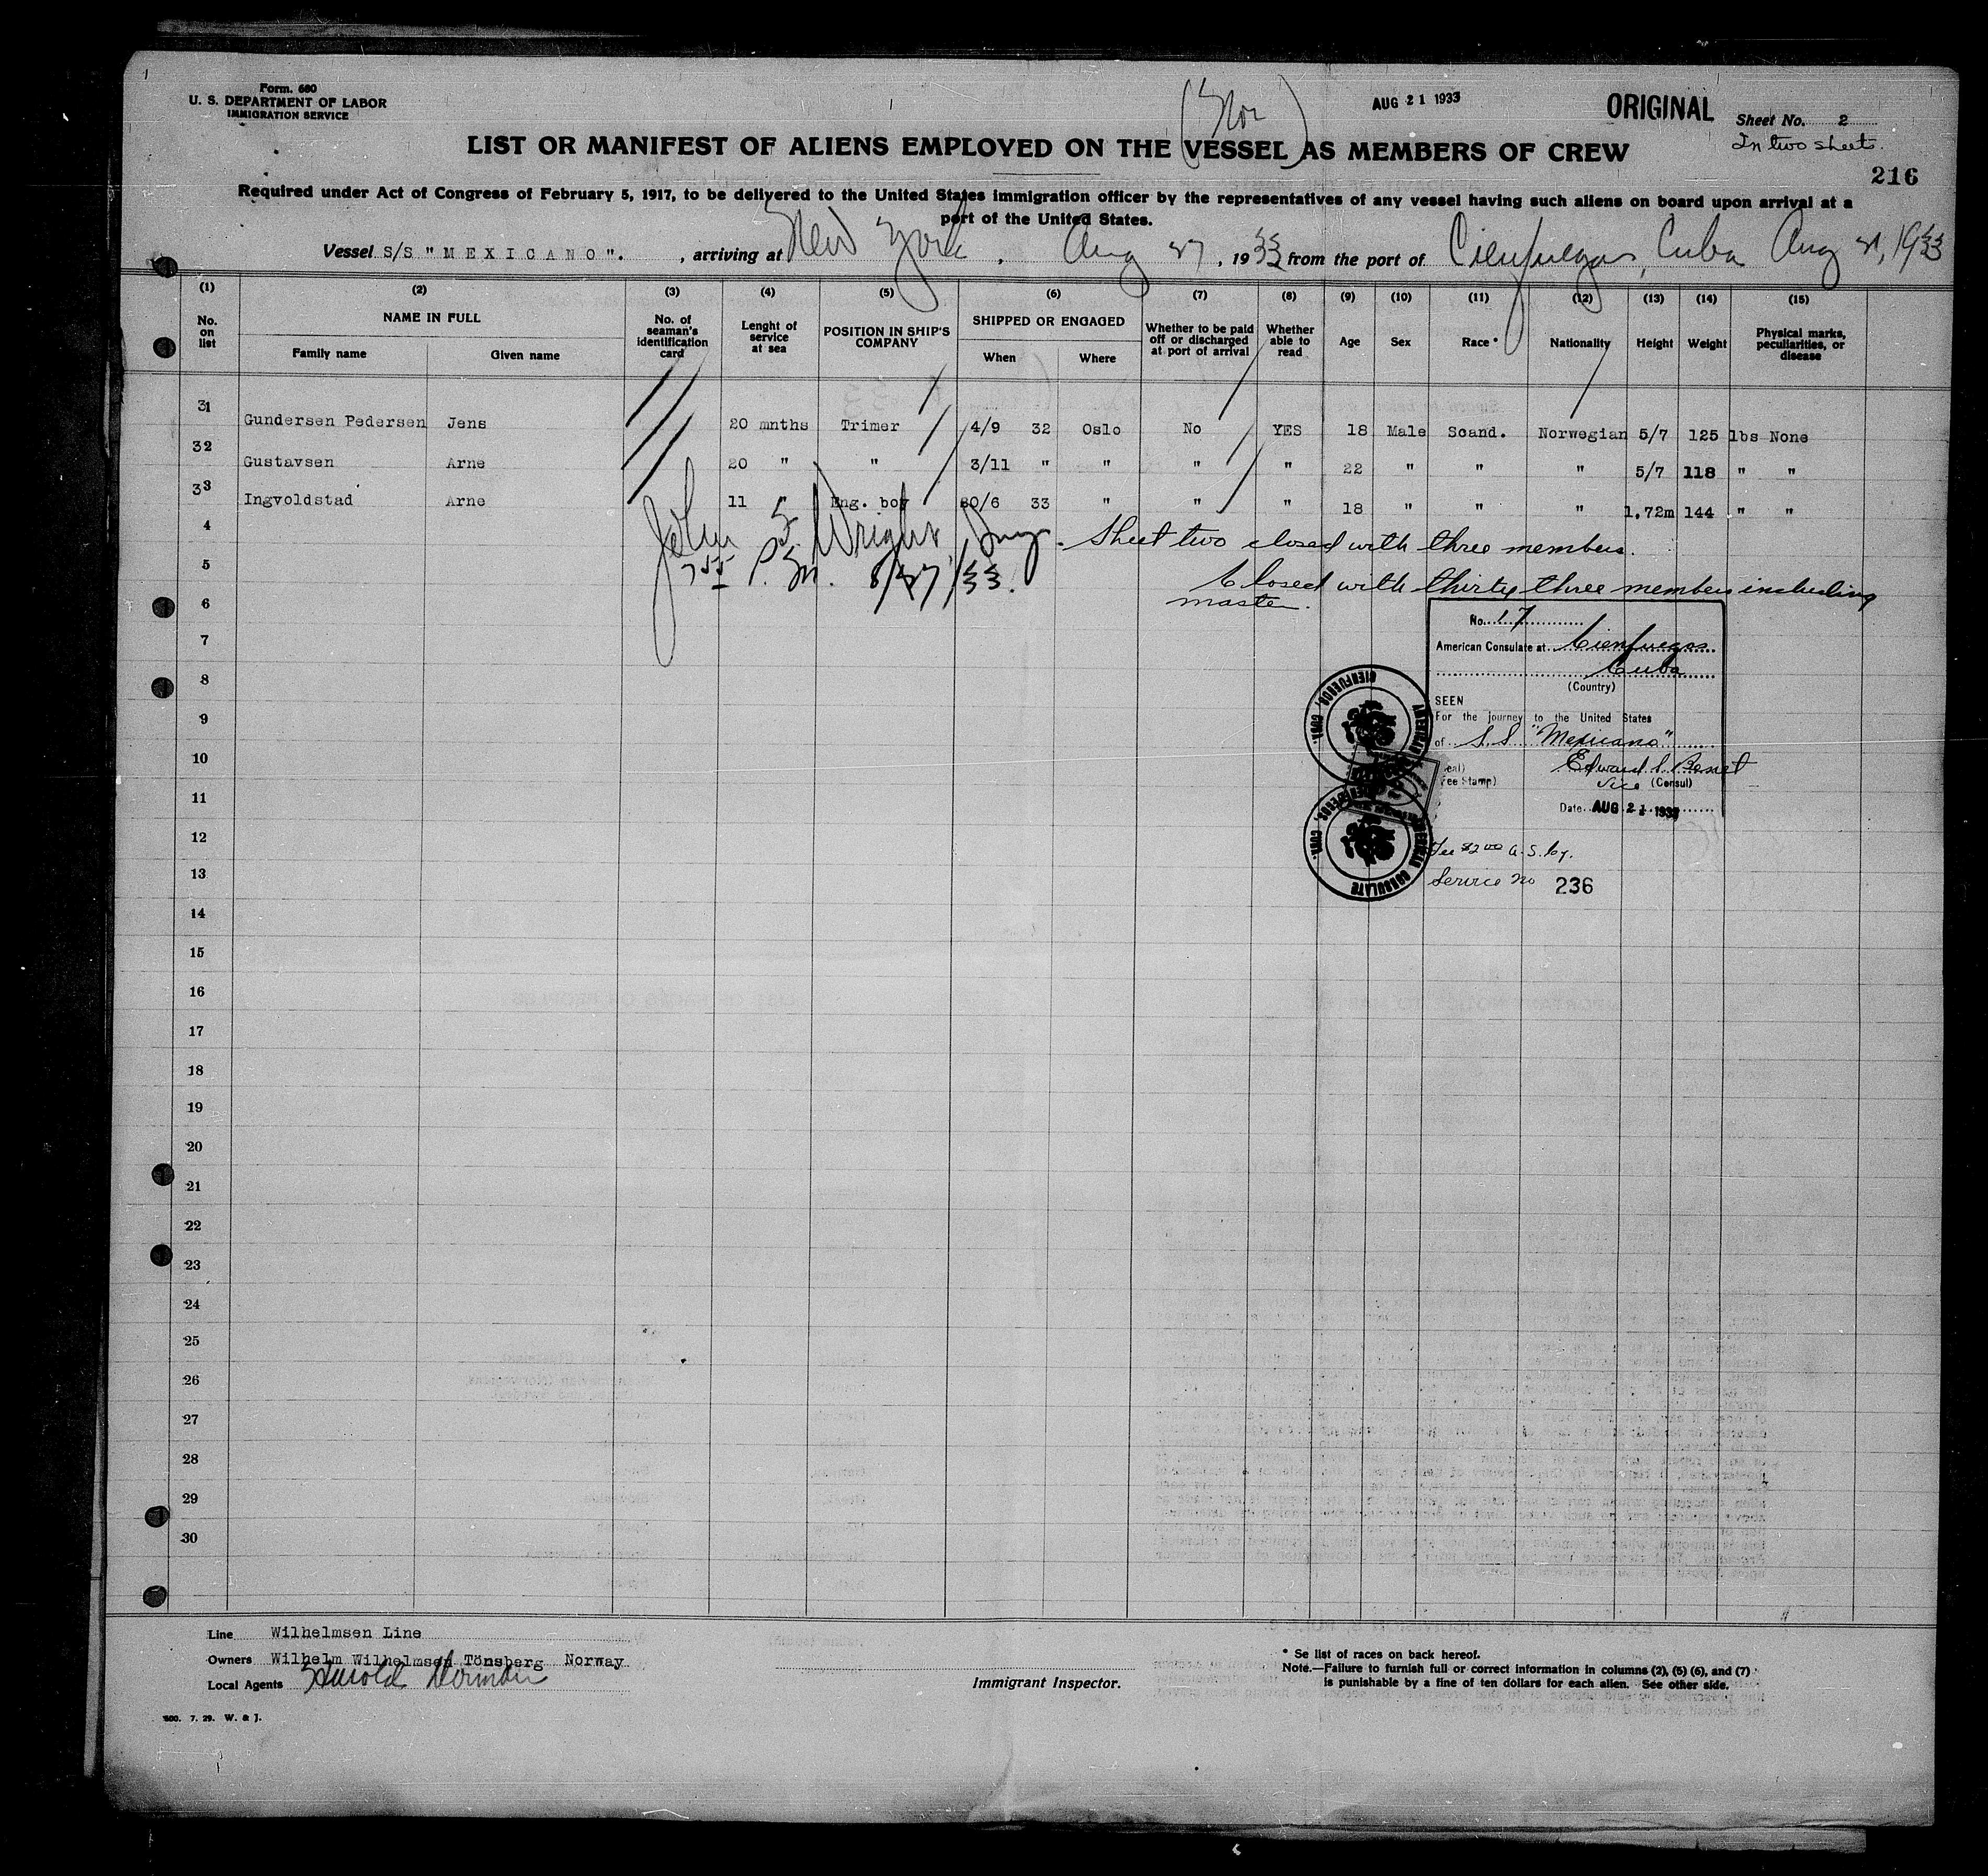 Form. 680
U. S. DEPARTMENT OF LABOR
IMMIGRATION SERVICE
(Nor)
AUG 21 1933
ORIGINAL
Sheet No. 2
In two sheets.
LIST OR MANIFEST OF ALIENS EMPLOYED ON THE VESSEL AS MEMBERS OF CREW
216
Required under Act of Congress of February 5, 1917, to be delivered to the United States immigration officer by the representatives of any vessel having such aliens on board upon arrival at a
port of the United States.
Vessel S/S "MEXICANO". , arriving at New York , Aug 27, 1933 from the port of Cienfuegos, Cuba Aug 21, 1933
(1) (2) (3) (4) (5) (6) (7) (8) (9) (10) (11) (12) (13) (14) (15)
No. on list
NAME IN FULL
Family name
Given name
No. of seaman's identification card
Lenght of service at sea
POSITION IN SHIP'S COMPANY
SHIPPED OR ENGAGED
When
Where
Whether to be paid off or discharged at port of arrival
Whether able to read
Age
Sex
Race *
Nationality
Height
Weight
Physical marks, peculiarities, or disease
31 Gundersen Pedersen Jens 20 mnths Trimer 4/9 32 Oslo No YES 18 Male Scand. Norwegian 5/7 125 lbs None
32 Gustavsen Arne 20 " " 3/11 " " " " 22 " " " 5/7 118 " "
33 Ingvoldstad Arne 11 " Eng. boy 30/6 33 " " " 18 " " " 1,72m 144 " "
4
John Wright, Insp. Sheet two closed with three members.
5
P.M. 8/27/33.
Closed with thirty three members including
master.
6
7
8
9
10
11
12
13
14
15
16
17
18
19
20
21
22
23
24
25
26
27
28
29
30
No. 17
American Consulate at Cienfuegos
Cuba
(Country)
SEEN
For the journey to the United States
of S.S "Mexicano"
(Seal)
(Fee Stamp)
Vice (Consul)
Date AUG 21 1933
AMERICAN CONSULATE CIENFUEGOS, CUBA.
AMERICAN CONSULATE CIENFUEGOS, CUBA.
Fee $2.00 U.S. Cy.
Service No 236
Line Wilhelmsen Line
Owners Wilhelm Wilhelmsen Tönsberg Norway
Local Agents Harold
Immigrant Inspector.
* Se list of races on back hereof.
Note.—Failure to furnish full or correct information in columns (2), (5) (6), and (7)
is punishable by a fine of ten dollars for each alien. See other side.
500. 7. 29. W. & J.